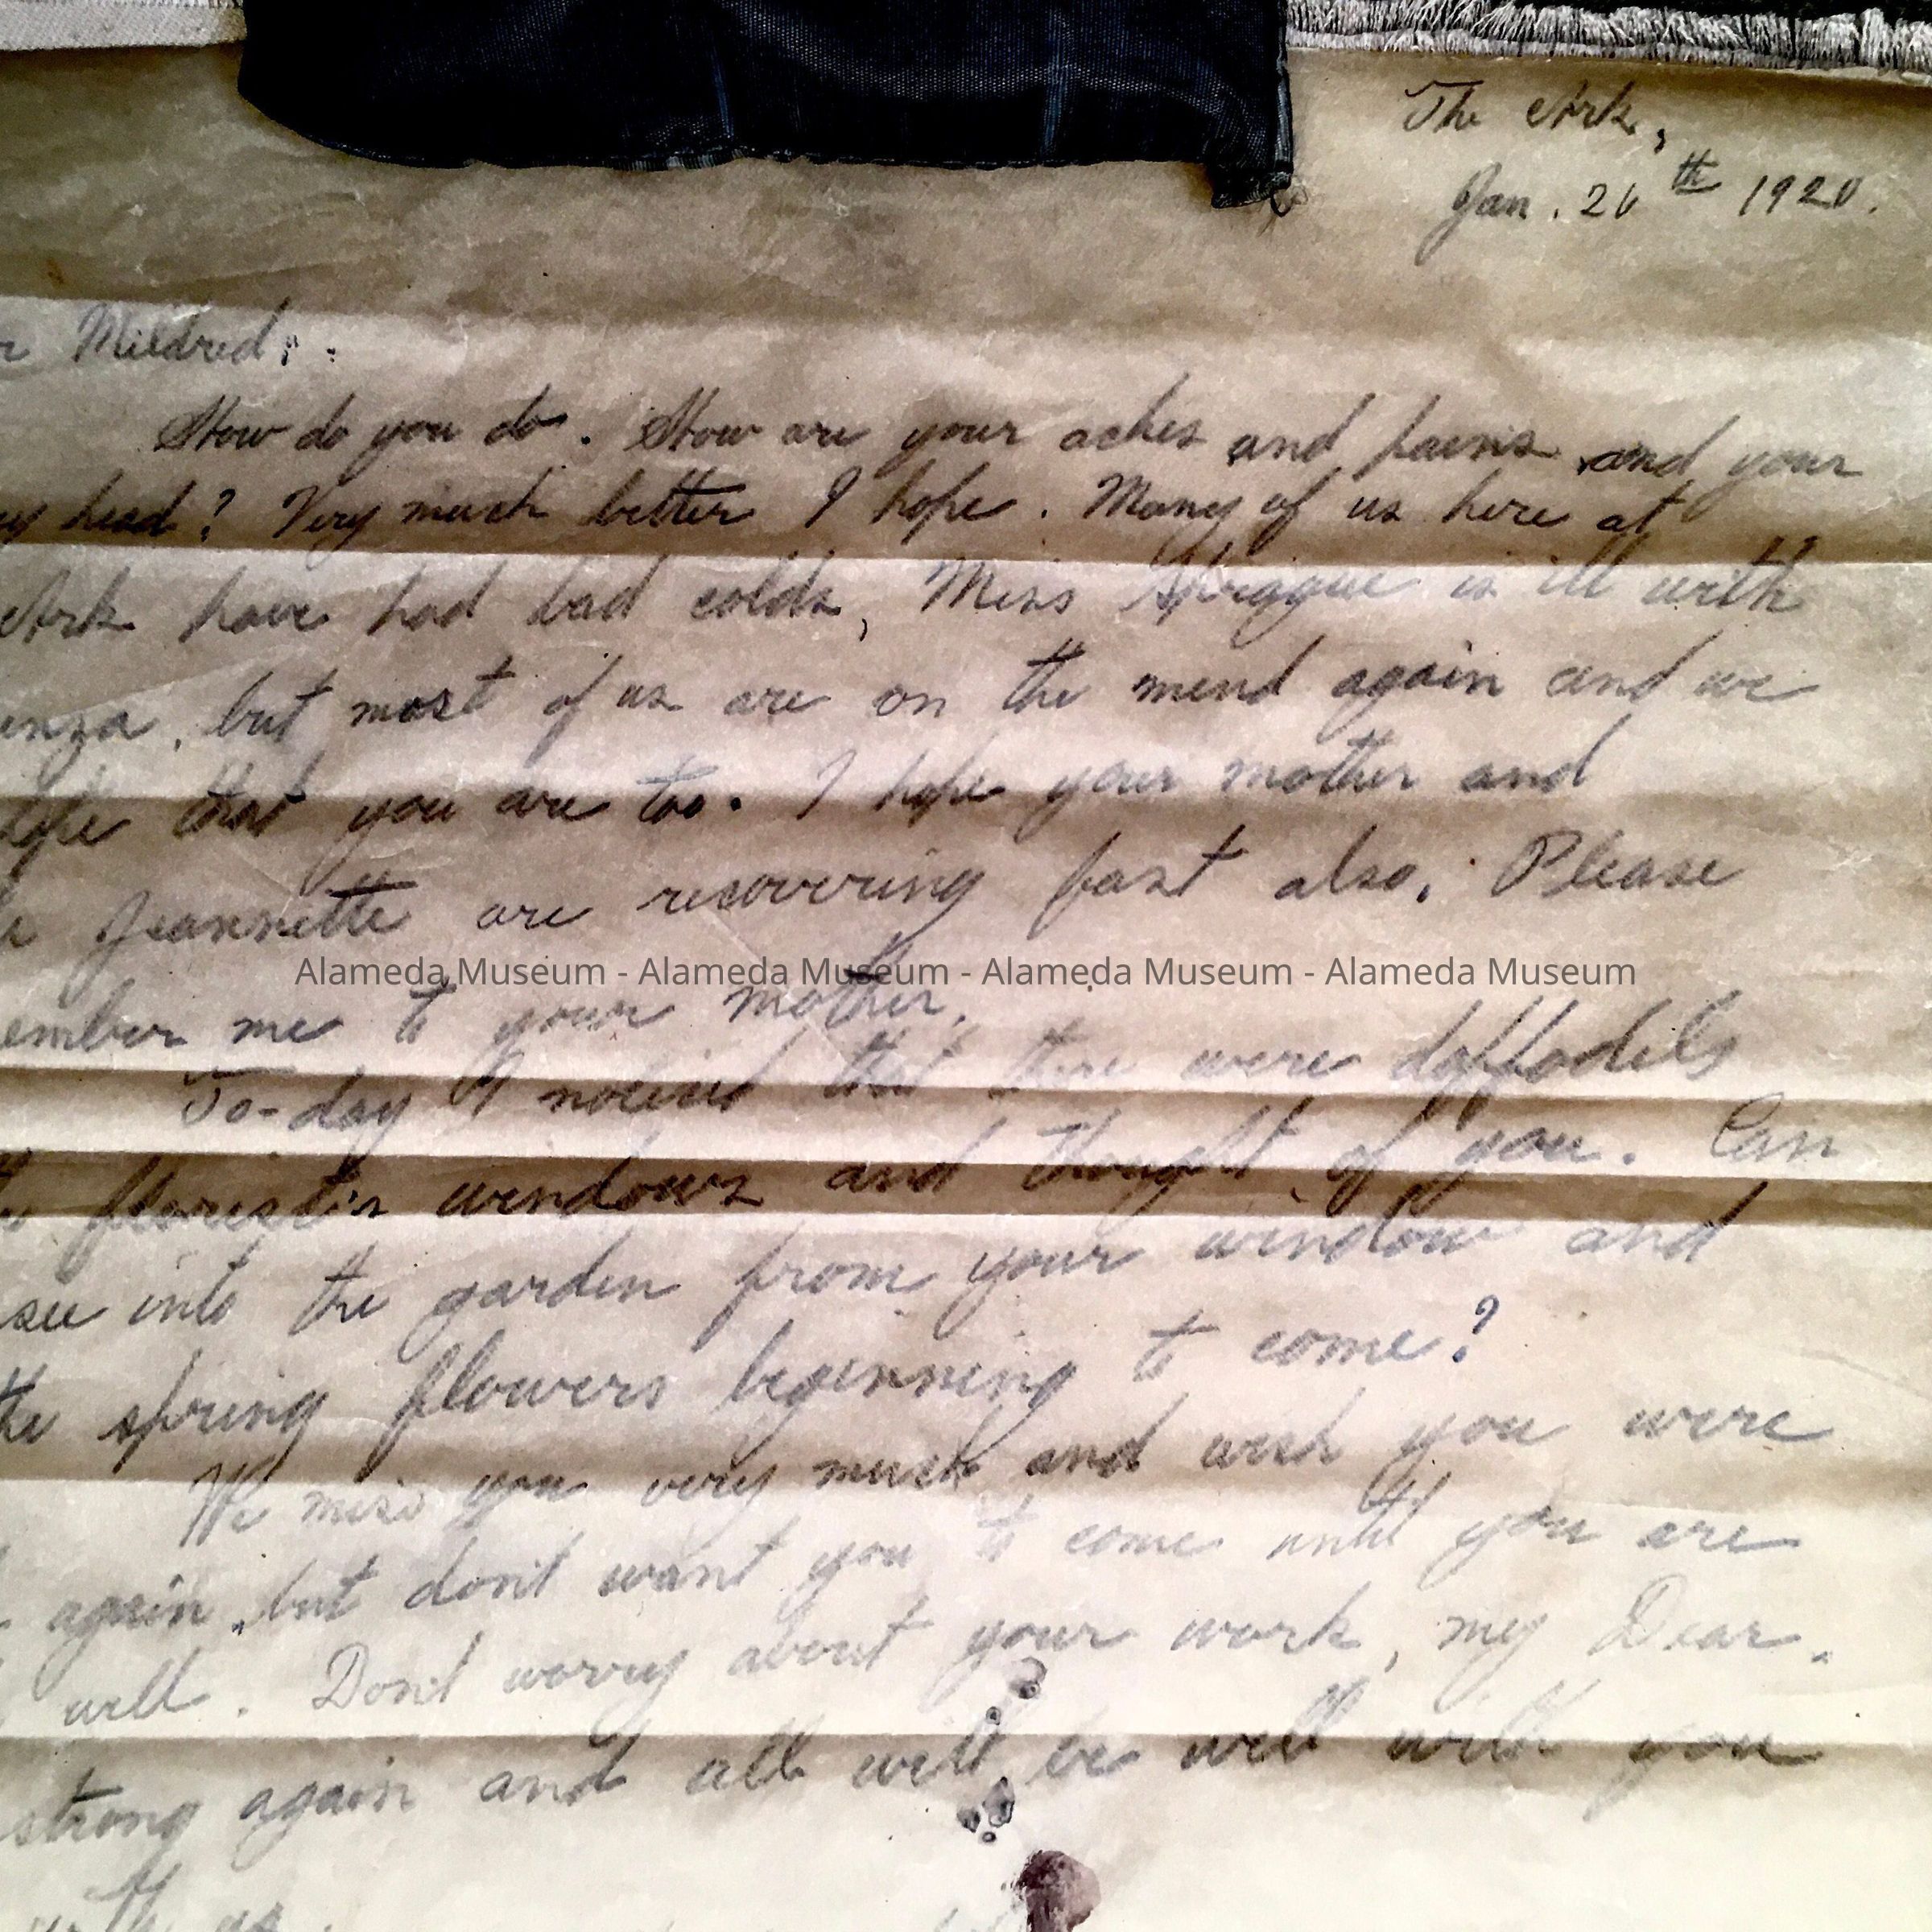 The Ark,
Jan. 26th 1920.
r Mildred:
How do you do. How are your aches and pains and your
y head? Very much better I hope. Many of us here at
Ark have had bad colds, Miss Sprague is ill with
enza, but most of us are on the mend again and we
hope that you are too. I hope your mother and
Jeannette are recovering fast also. Please
ember me to your mother.
Alameda Museum - Alameda Museum - Alameda Museum - Alameda Museum
To-day I noticed that there were daffodils
florist's windows and thought of you. Can
see into the garden from your window and
the spring flowers beginning to come?
We miss you very much and wish you were
again, but don't want you to come until you are
well. Don't worry about your work, my Dear.
strong again and all will be well with you
us.